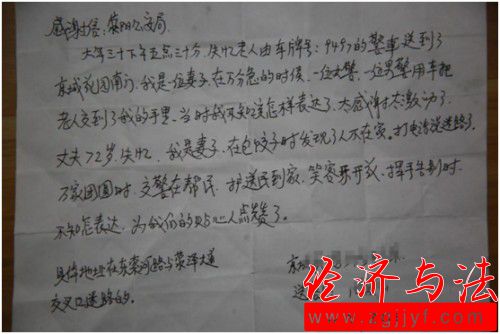 感谢信:荥阳公安局
大年三十下午五点三十分,失忆老人由车牌号:9497的警车送到了
京城花园南门,我是一位妻子,在万分急的时候,一位女警,一位男警用车把
老人交到了我的手里。当时我不知该怎样表达了,太感谢太激动了。
丈夫72岁,失忆,我是妻子,在包饺子时发现了人不在家。打电话说迷路了。
万家团圆时,交警在帮民,护送民到家,笑容乐开花,挥手告别时,
不知怎表达,为我们的贴心人点赞了。
具体地址在东索河路与荥泽大道
交叉口迷路的。
京城
经济与法
www.zgjjyf.com